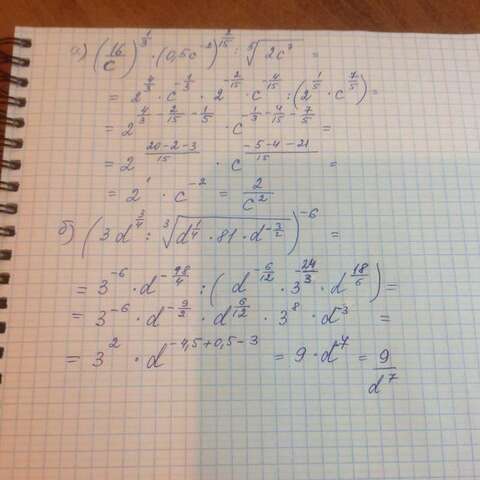 а) (16/c)^(1/3) · (0,5c^(-2))^(2/15) : ⁵√(2c⁷) =
= 2^(4/3) · c^(-1/3) · 2^(-2/15) · c^(-4/15) : (2^(1/5) · c^(7/5)) =
= 2^(4/3 - 2/15 - 1/5) · c^(-1/3 - 4/15 - 7/5) =
= 2^((20-2-3)/15) · c^((-5-4-21)/15) =
= 2^1 · c^(-2) = 2/c²
б) (3d^(3/4) : ³√(d^(1/4) · 81 · d^(-3/2)))^(-6) =
= 3^(-6) · d^(-18/4) : (d^(-6/12) · 3^(-24/3) · d^(18/6)) =
= 3^(-6) · d^(-9/2) · d^(6/12) · 3^8 · d^(-3) =
= 3^2 · d^(-4,5+0,5-3) = 9 · d^(-7) = 9/d^7